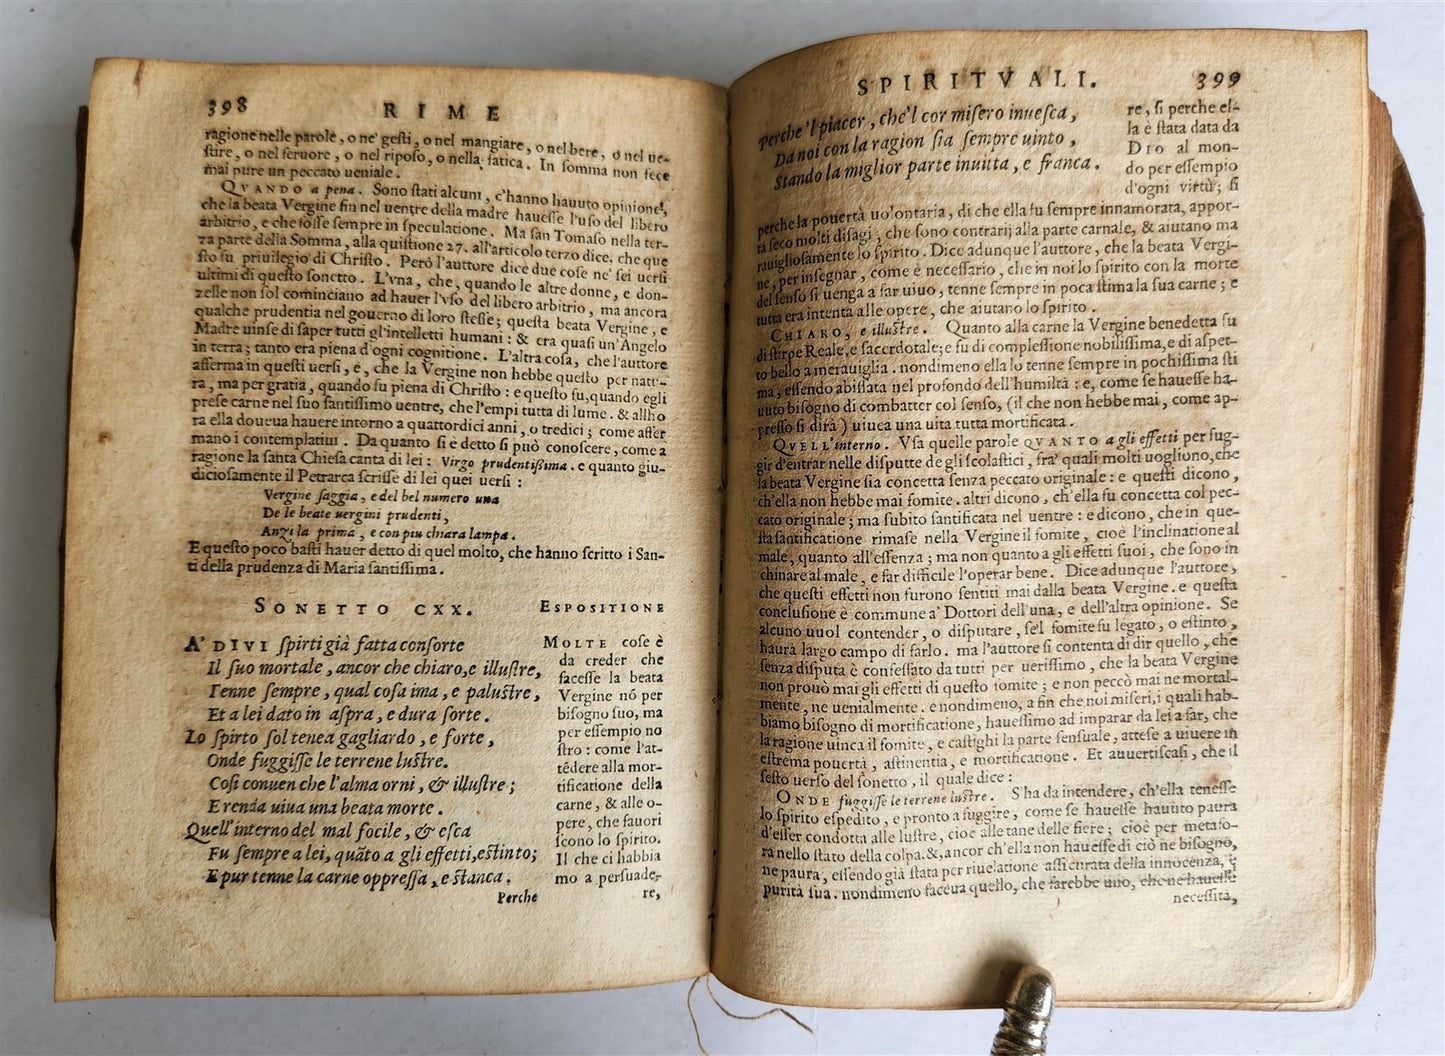 398 RIME
ragione nelle parole, o ne' gesti, o nel mangiare, o nel bere, o nel ue-
stire, o nel feruore, o nel riposo, o nella fatica. In somma non fece
mai pure un peccato ueniale.
QVANDO a pena. Sono stati alcuni, c'hanno hauuto opinione,
che la beata Vergine fin nel uentre della madre hauesse l'uso del libero
arbitrio, e che fosse sempre in speculatione. Ma san Tomaso nella ter-
za parte della Somma, alla quistione 27. all'articolo terzo dice, che que
sto fu priuilegio di Christo. Però l'auttore dice due cose ne' sei uersi
ultimi di questo sonetto. L'vna, che, quando le altre donne, e don-
zelle non sol cominciano ad hauer l'vso del libero arbitrio, ma ancora
qualche prudentia nel gouerno di loro stesse; questa beata Vergine, e
Madre uinse di saper tutti gl'intelletti humani: & era quasi un'Angelo
in terra; tanto era piena d'ogni cognitione. L'altra cosa, che l'auttore
afferma in questi uersi, è, che la Vergine non hebbe questo per natu-
ra, ma per gratia, quando fu piena di Christo: e questo fu, quando egli
prese carne nel suo santissimo uentre, che l'empi tutta di lume. & allho
ra ella doueua hauere intorno a quattordici anni, o tredici; come affer
mano i contemplatiui. Da quanto si è detto si può conoscere, come a
ragione la santa Chiesa canta di lei: Virgo prudentißima. e quanto giu-
diciosamente il Petrarca scrisse di lei quei uersi:
Vergine saggia, e del bel numero una
De le beate uergini prudenti,
Anzi la prima, e con piu chiara lampa.
E questo poco basti hauer detto di quel molto, che hanno scritto i San-
ti della prudenza di Maria santissima.
SONETTO CXX.
A' DIVI spirti già fatta consorte
Il suo mortale, ancor che chiaro, e illustre,
Tenne sempre, qual cosa ima, e palustre,
Et a lei dato in aspra, e dura sorte.
Lo spirto sol tenea gagliardo, e forte,
Onde fuggisse le terrene lustre.
Cosi conuen che l'alma orni, & illustre;
E renda uiua una beata morte.
Quell'interno del mal focile, & esca
Fu sempre a lei, quãto a gli effetti, estinto;
E pur tenne la carne oppressa, e stanca.
Perche
ESPOSITIONE
MOLTE cose è
da creder che
facesse la beata
Vergine nõ per
bisogno suo, ma
per essempio no
stro: come l'at-
tẽdere alla mor-
tificatione della
carne, & alle o-
pere, che fauori
scono lo spirito.
Il che ci habbia
mo a persuade-
re,
SPIRITVALI. 399
Perche 'l piacer, che'l cor misero inuesca,
Da noi con la ragion sia sempre uinto,
Stando la miglior parte inuitta, e franca.
re, si perche el-
la è stata data da
DIO al mon-
do per essempio
d'ogni virtù; si
perche la pouertà uolontaria, di che ella fu sempre innamorata, appor-
ta seco molti disagi, che sono contrarij alla parte carnale, & aiutano ma
rauigliosamente lo spirito. Dice adunque l'auttore, che la beata Vergi-
ne, per insegnar, come è necessario, che in noi lo spirito con la morte
del senso si uenga a far uiuo, tenne sempre in poca stima la sua carne; e
tutta era intenta alle opere, che aiutano lo spirito.
CHIARO, e illustre. Quanto alla carne la Vergine benedetta fu
di stirpe Reale, e sacerdotale; e fu di complessione nobilissima, e di aspet-
to bello a merauiglia. nondimeno ella lo tenne sempre in pochissima sti
ma, essendo abissata nel profondo dell'humiltà: e, come se hauesse ha-
uuto bisogno di combatter col senso, (il che non hebbe mai, come ap-
presso si dirà) uiuea una uita tutta mortificata.
QVELL'interno. Vsa quelle parole QVANTO a gli effetti per fug-
gir d'entrar nelle disputte de gli scolastici, fra' quali molti uogliono, che
la beata Vergine sia concetta senza peccato originale: e questi dicono,
ch'ella non hebbe mai fomite. altri dicono, ch'ella fu concetta col pec-
cato originale; ma subito santificata nel uentre: e dicono, che in que-
sta santificatione rimase nella Vergine il fomite, cioè l'inclinatione al
male, quanto all'essenza; ma non quanto a gli effetti suoi, che sono in
chinare al male, e far difficile l'operar bene. Dice adunque l'auttore,
che questi effetti non furono sentiti mai dalla beata Vergine. e questa
conclusione è commune a' Dottori dell'una, e dell'altra opinione. Se
alcuno uuol contender, o disputare, se'l fomite fu legato, o estinto,
haurà largo campo di farlo. ma l'auttore si contenta di dir quello, che
senza disputa è confessato da tutti per uerissimo, che la beata Vergine
non prouò mai gli effetti di questo fomite; e non peccò mai ne mortal-
mente, ne uenialmente. e nondimeno, a fin che noi miseri, i quali hab-
biamo bisogno di mortificatione, hauessimo ad imparar da lei a far, che
la ragione uinca il fomite, e castighi la parte sensuale, attese a uiuere in
estrema pouertà, astinentia, e mortificatione. Et auuertiscasi, che il
sesto uerso del sonetto, il quale dice:
ONDE fuggisse le terrene lustre. S'ha da intendere, ch'ella tenesse
lo spirito espedito, e pronto a fuggire, come se hauesse hauuto paura
d'esser condotta alle lustre, cioè alle tane delle fiere; cioè per metafo-
ra nello stato della colpa. &, ancor ch'ella non hauesse di ciò ne bisogno,
ne paura, essendo già stata per riuelatione assicurata della innocenza, e
purità sua. nondimeno faceua quello, che farebbe uno, che ne hauesse
necessità,